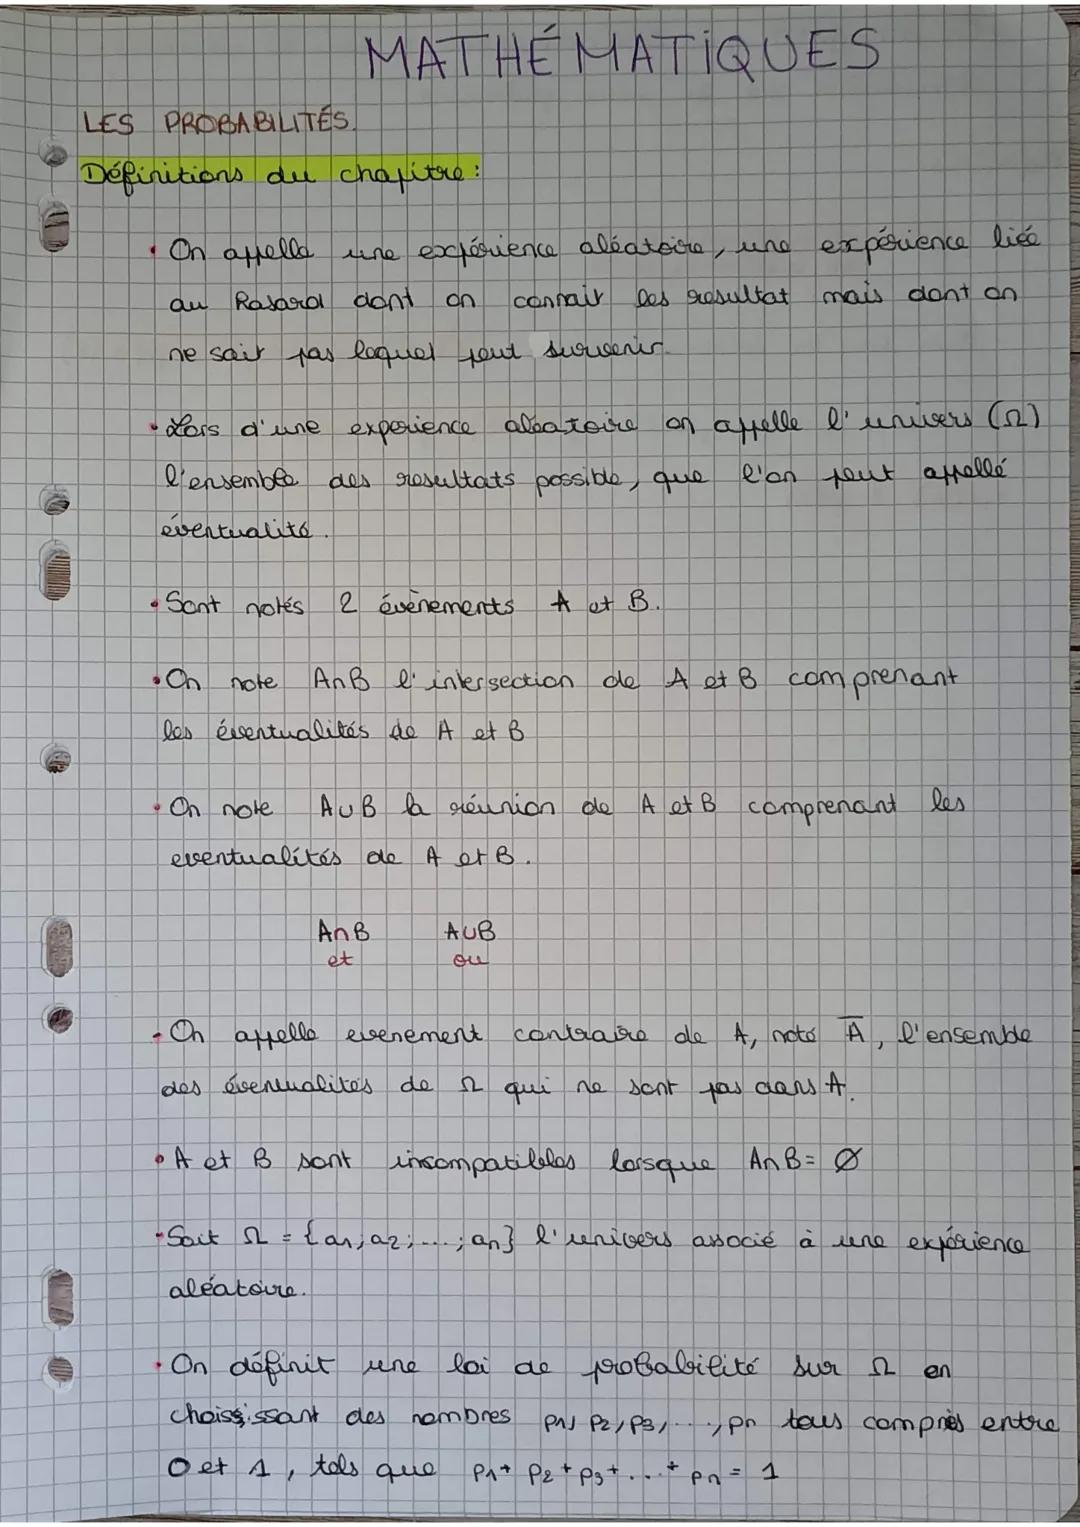 MATHÉMATIQUES
LES PROBABILITÉS.
Définitions du chapitre :
• On appelle une expérience aléatoire, une expérience liée
au hasard dont on connait les resultat mais dont on
ne sait pas lequel peut survenir.
• Lors d'une experience aléatoire on appelle l'univers (Ω)
l'ensemble des resultats possible, que l'on peut appellé
éventualité.
• Sont notés 2 évènements A et B.
• On note A∩B l'intersection de A et B comprenant
les éventualités de A et B
• On note A∪B la réunion de A et B comprenant les
eventualités de A et B.
A∩B A∪B
et ou
• On appelle evenement contraire de A, noté A̅, l'ensemble
des éventualités de Ω qui ne sont pas dans A.
• A et B sont incompatibles lorsque A∩B = Ø
• Soit Ω = {a1; a2; ...; an} l'univers associé à une expérience
aléatoire.
• On définit une loi de probabilité sur Ω en
choississant des nombres p1, p2, p3, ..., pn tous compris entre
0 et 1, tels que p1 + p2 + p3 + ... + pn = 1